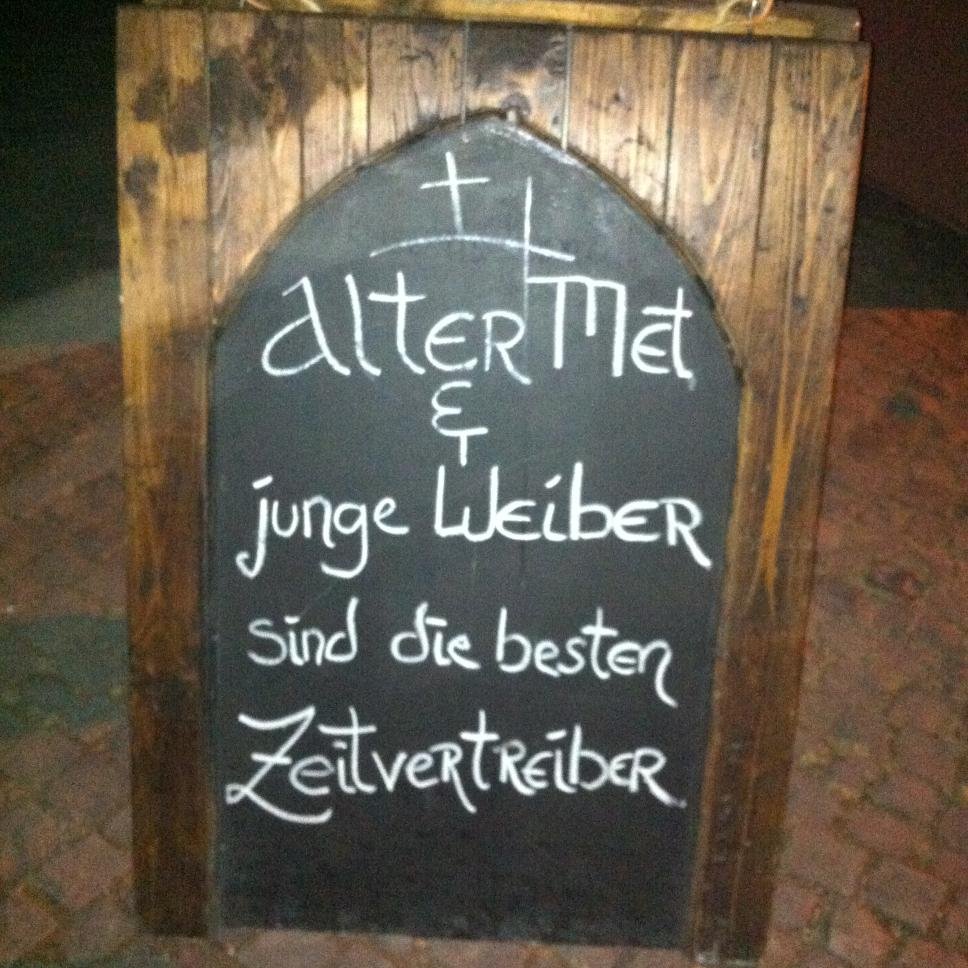 Alter Met
&
junge Weiber
sind die besten
Zeitvertreiber